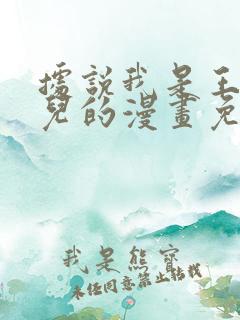 據説我是王
兒的漫畫免
我是熊寶
未经同意禁止转载